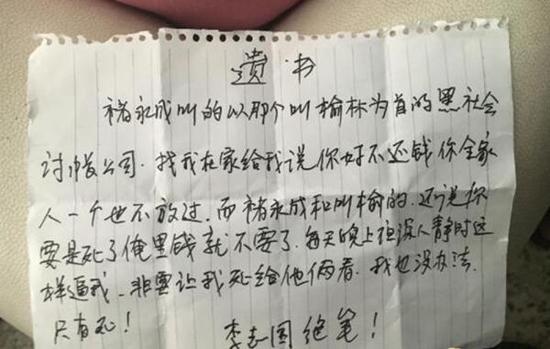 遗书
褚永成叫的以那个叫榆林为首的黑社会
讨帐公司.找我在家给我说你好不还钱你全家
人一个也不放过.而褚永成和叫榆的.还说你
要是死了俺里钱就不要了.每天晚上夜深人静时这
样逼我.非要让我死给他俩看.我也没办法.
只有死!
李志国绝笔!